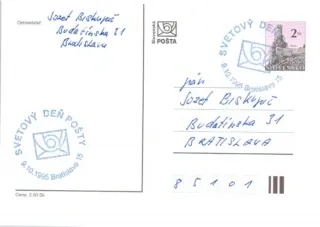 Odosielateľ:
Jozef Biskupič
Budatínska 31
Bratislava
SVETOVÝ DEŇ POŠTY
9.10.1995 Bratislava 15
Cena: 2,50 Sk
Slovenská
POŠTA
SVETOVÝ DEŇ POŠTY
9.10.1995 Bratislava 15
2
SLOVENSKO
pán
Jozef Biskupič
Budatínska 31
BRATISLAVA
85101